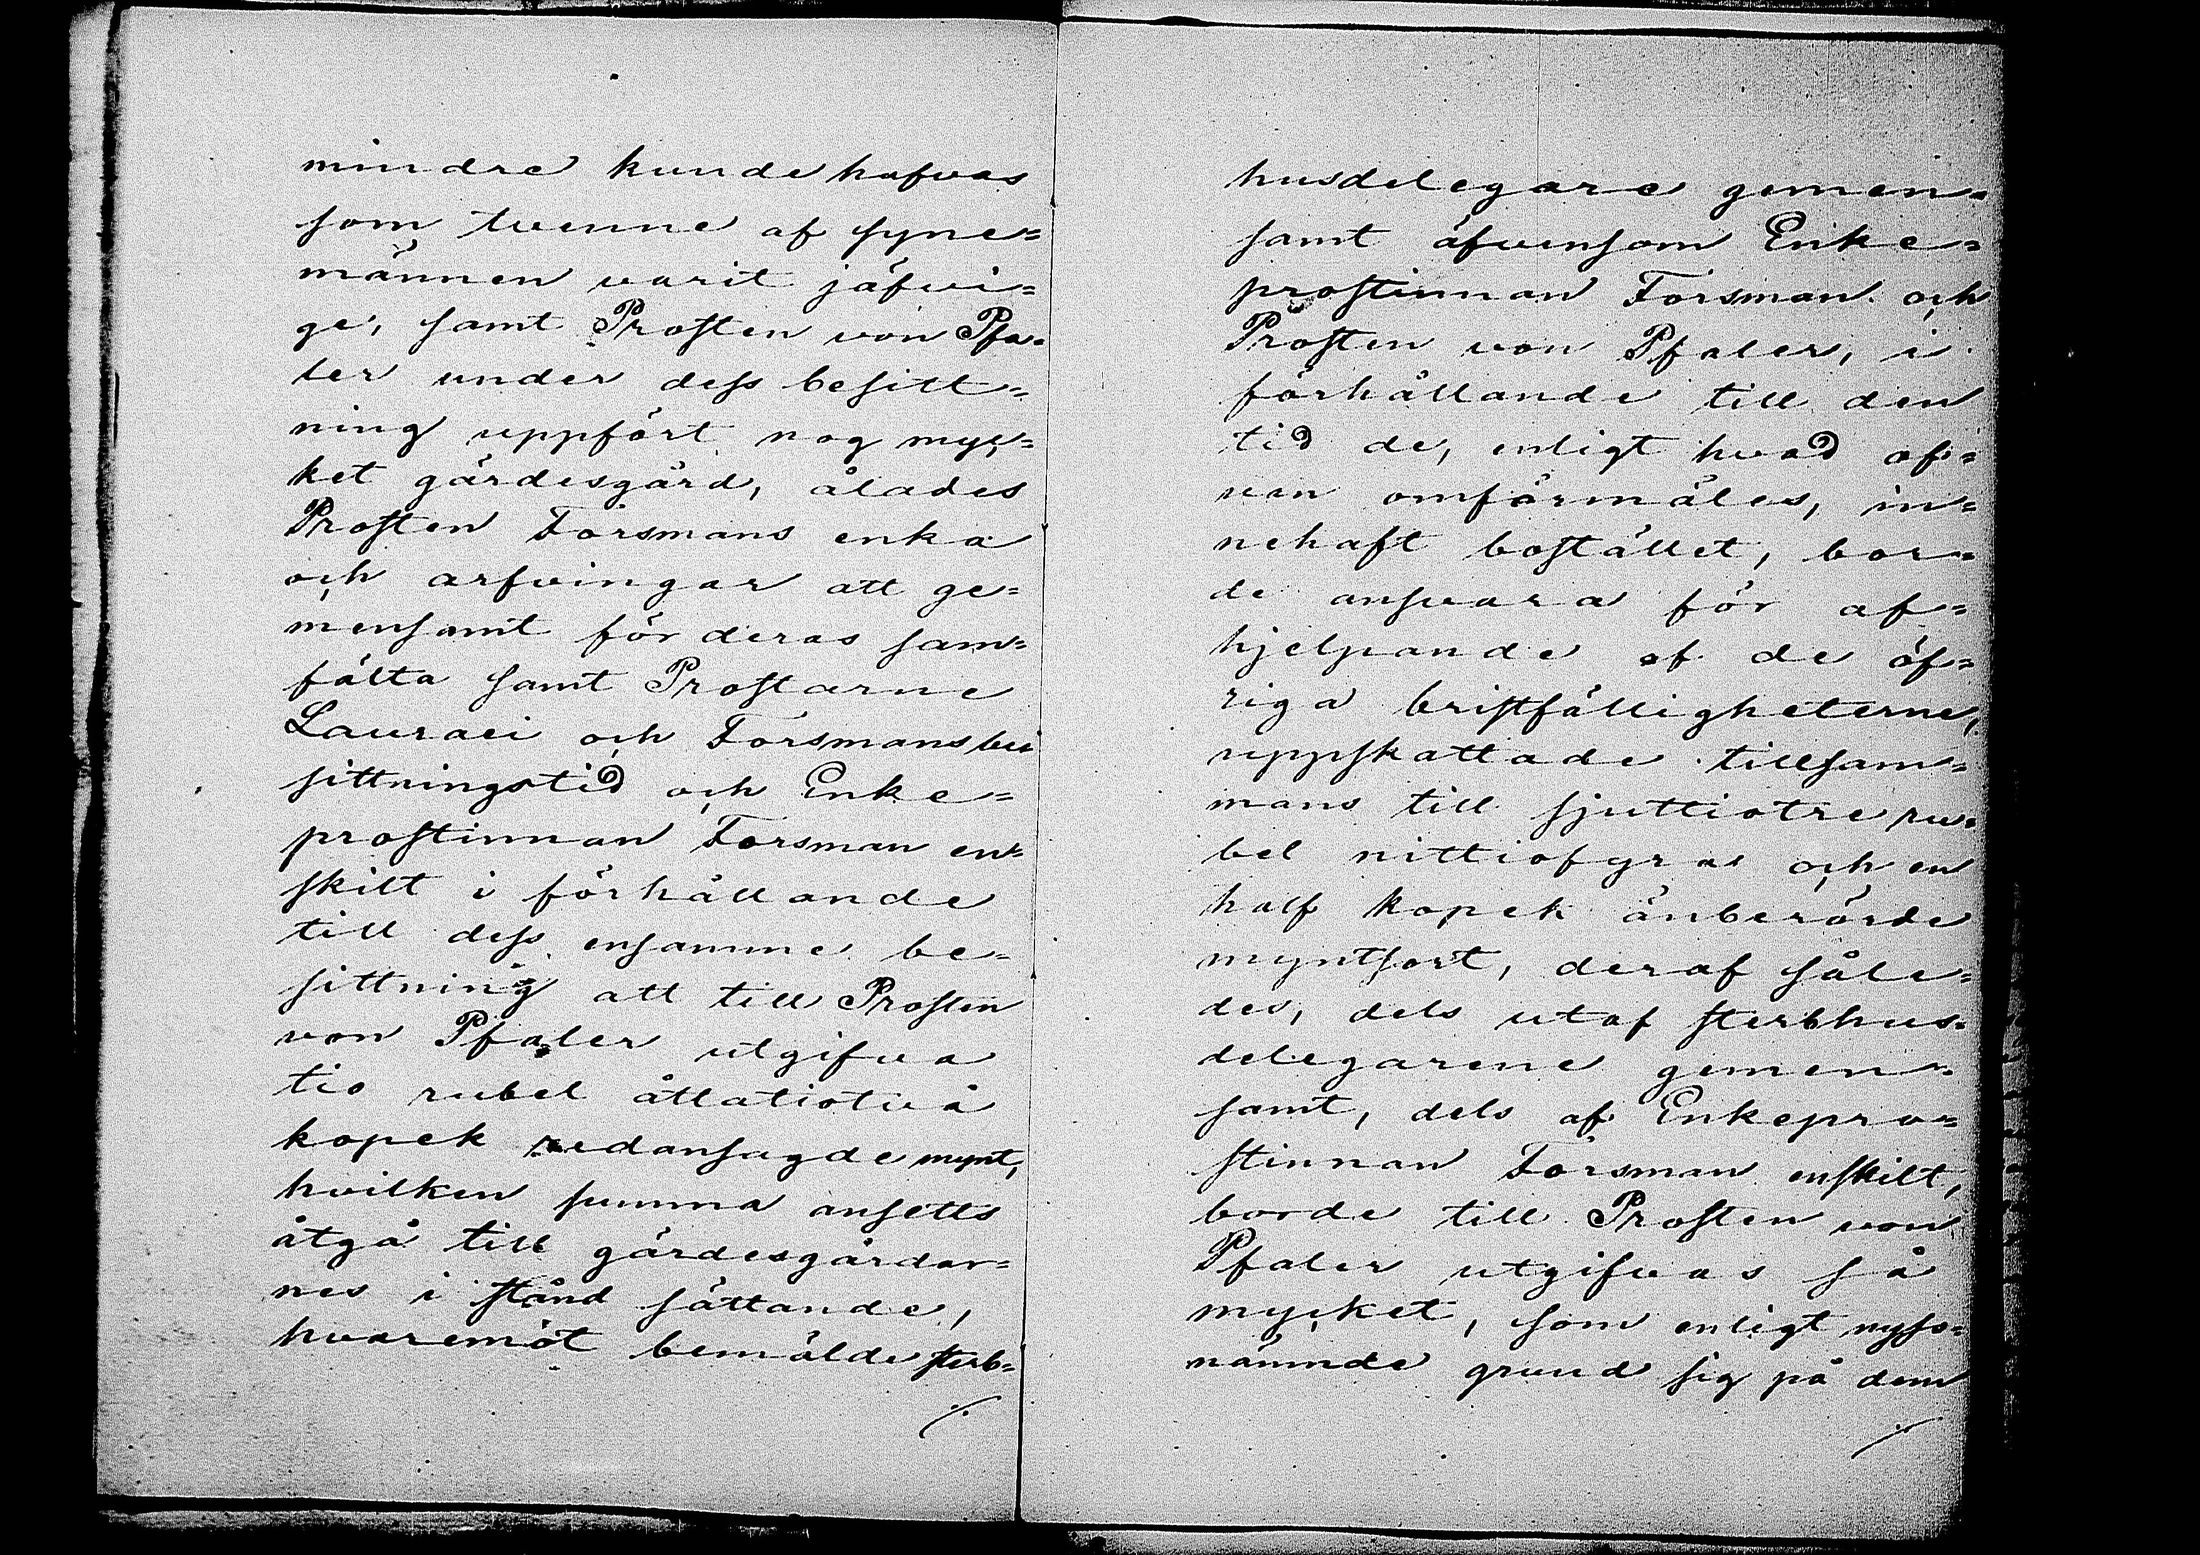 mindre kunde hafvas
som tvenne af syne=
männen varit jäfvi=
ge, samt Prosten von Pfa=
ler under dess besitt=
ning uppfört nog myc=
ket gärdesgård, ålades
Prosten Forsmans enka
och arfvingar att ge=
mensamt för deras sam=
fälta samt Prostarne
Lauraei och Forsmans be
sittningstid och Enke=
prostinnan Forsman en=
skilt i förhållande
till dess ensamme be=
sittning att till Prosten
von Pfaler utgifva
tio rubel åttatiotvå
kopek redansagde mynt,
hvilken summa ansetts
åtgå till gärdesgårdar=
nes i stånd sättande,
hvaremot bemälde sterb=
./.
husdelegare gemen=
samt äfvensom Enke=
prostinnan Forsman och
Prosten von Pfaler, i
förhållande till den
tid de, enligt hvad of=
van omförmäles, in=
nehaft bostället, bor=
de ansvara för af=
hjelpande af de öf=
riga bristfälligheterne,
uppskattade tillsam=
mans till sjuttiotre ru=
bel nittiofyra och en
half kopek änberörde
myntsort, deraf såle=
des, dels utaf sterbhus=
delegarene gemen=
samt, dels af Enkepro=
stinnan Forsman enskilt,
borde till Prosten von
Pfaler utgifvas så
mycket, som enligt nyss=
nämnde grund sig på dem
./.